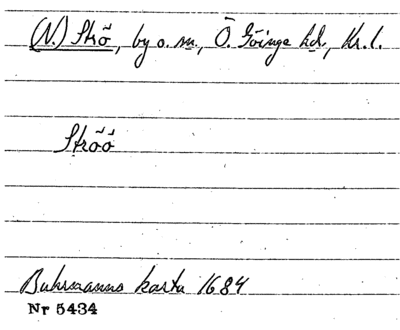 (N.) Strö, by o. sn., Ö. Göinge hd., Kr. l.
Ströö
Buhrmanns karta 1684
Nr 5434